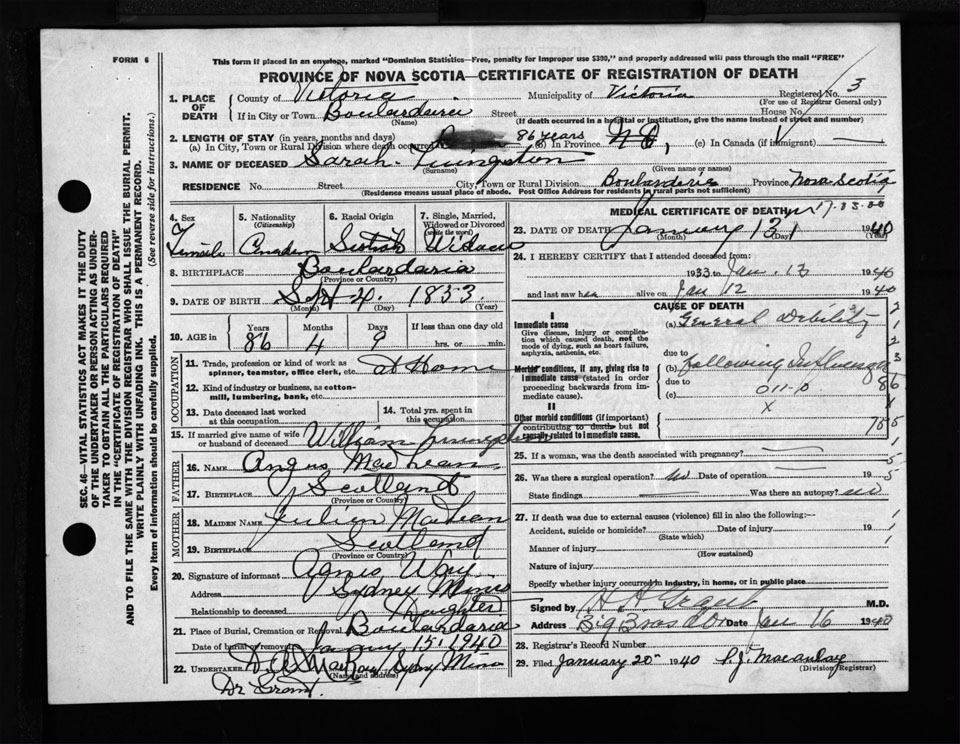 FORM 6
This form to be placed in an envelope, marked "Dominion Statistics—Free, penalty for improper use $300," and properly addressed will pass through the mail "FREE"
PROVINCE OF NOVA SCOTIA—CERTIFICATE OF REGISTRATION OF DEATH
1. PLACE OF DEATH
County of Victoria Municipality of Victoria Registered No. 3
(For use of Registrar General only)
If in City or Town Boulardarie Street House No.
(Name) (If death occurred in a hospital or institution, give the name instead of street and number)
2. LENGTH OF STAY (in years, months and days)
(a) In City, Town or Rural Division where death occurred 86 years (b) In Province N S, (c) In Canada (if immigrant)
3. NAME OF DECEASED Sarah Livingston
(Surname) (Given name or names)
RESIDENCE No. Street City, Town or Rural Division Boulardarie Province Nova Scotia
(Residence means usual place of abode. Post Office Address for residents in rural parts not sufficient)
4. Sex
Female
5. Nationality
(Citizenship)
Canadian
6. Racial Origin
Scotch
7. Single, Married, Widowed or Divorced
(write the word)
Widow
8. BIRTHPLACE Boulardaria
(Province or Country)
9. DATE OF BIRTH Sept 4, 1853
(Month) (Day) (Year)
10. AGE in Years Months Days If less than one day old
86 4 9 hrs. or min.
OCCUPATION
11. Trade, profession or kind of work as spinner, teamster, office clerk, etc. at Home
12. Kind of industry or business, as cotton-mill, lumbering, bank, etc.
13. Date deceased last worked at this occupation
14. Total yrs. spent in this occupation
15. If married give name of wife or husband of deceased William Livingston
FATHER
16. NAME Angus MacLean
17. BIRTHPLACE Scotland
(Province or Country)
MOTHER
18. MAIDEN NAME MacLean
19. BIRTHPLACE Scotland
(Province or Country)
20. Signature of informant Agnes
Address Sydney Mines
Relationship to deceased Daughter
21. Place of Burial, Cremation or Removal Boulardaria
Date of burial or removal January 15. 1940
22. UNDERTAKER Sydney Mines
(Name and address)
Dr Grant.
MEDICAL CERTIFICATE OF DEATH
23. DATE OF DEATH January 13 1940
(Month) (Day) (Year)
24. I HEREBY CERTIFY that I attended deceased from:
1933 to Jan. 13 1940
and last saw her alive on Jan 12 1940
CAUSE OF DEATH
I
Immediate cause
Give disease, injury or complication which caused death, not the mode of dying, such as heart failure, asphyxia, asthenia, etc.
(a) General Debility
due to
Morbid conditions, if any, giving rise to immediate cause (stated in order proceeding backwards from immediate cause).
(b) following Influenza
due to
(c) 011-0
X
II
Other morbid conditions (if important) contributing to death but not causally related to immediate cause.
25. If a woman, was the death associated with pregnancy?
26. Was there a surgical operation? no Date of operation 19
State findings Was there an autopsy? no
27. If death was due to external causes (violence) fill in also the following:—
Accident, suicide or homicide? Date of injury 19
(State which)
Manner of injury
(How sustained)
Nature of injury
Specify whether injury occurred in industry, in home, or in public place
Signed by H A Grant M.D.
Address Big Bras d'Or Date Jan 16 1940
28. Registrar's Record Number
29. Filed January 20 1940 P.J. Macaulay
(Division Registrar)
SEC. 46—VITAL STATISTICS ACT MAKES IT THE DUTY
OF THE UNDERTAKER OR PERSON ACTING AS UNDER-
TAKER TO OBTAIN ALL THE PARTICULARS REQUIRED
IN THE "CERTIFICATE OF REGISTRATION OF DEATH"
AND TO FILE THE SAME WITH THE DIVISION REGISTRAR WHO SHALL ISSUE THE BURIAL PERMIT.
WRITE PLAINLY WITH UNFADING INK. THIS IS A PERMANENT RECORD.
Every item of information should be carefully supplied. (See reverse side for instructions.)